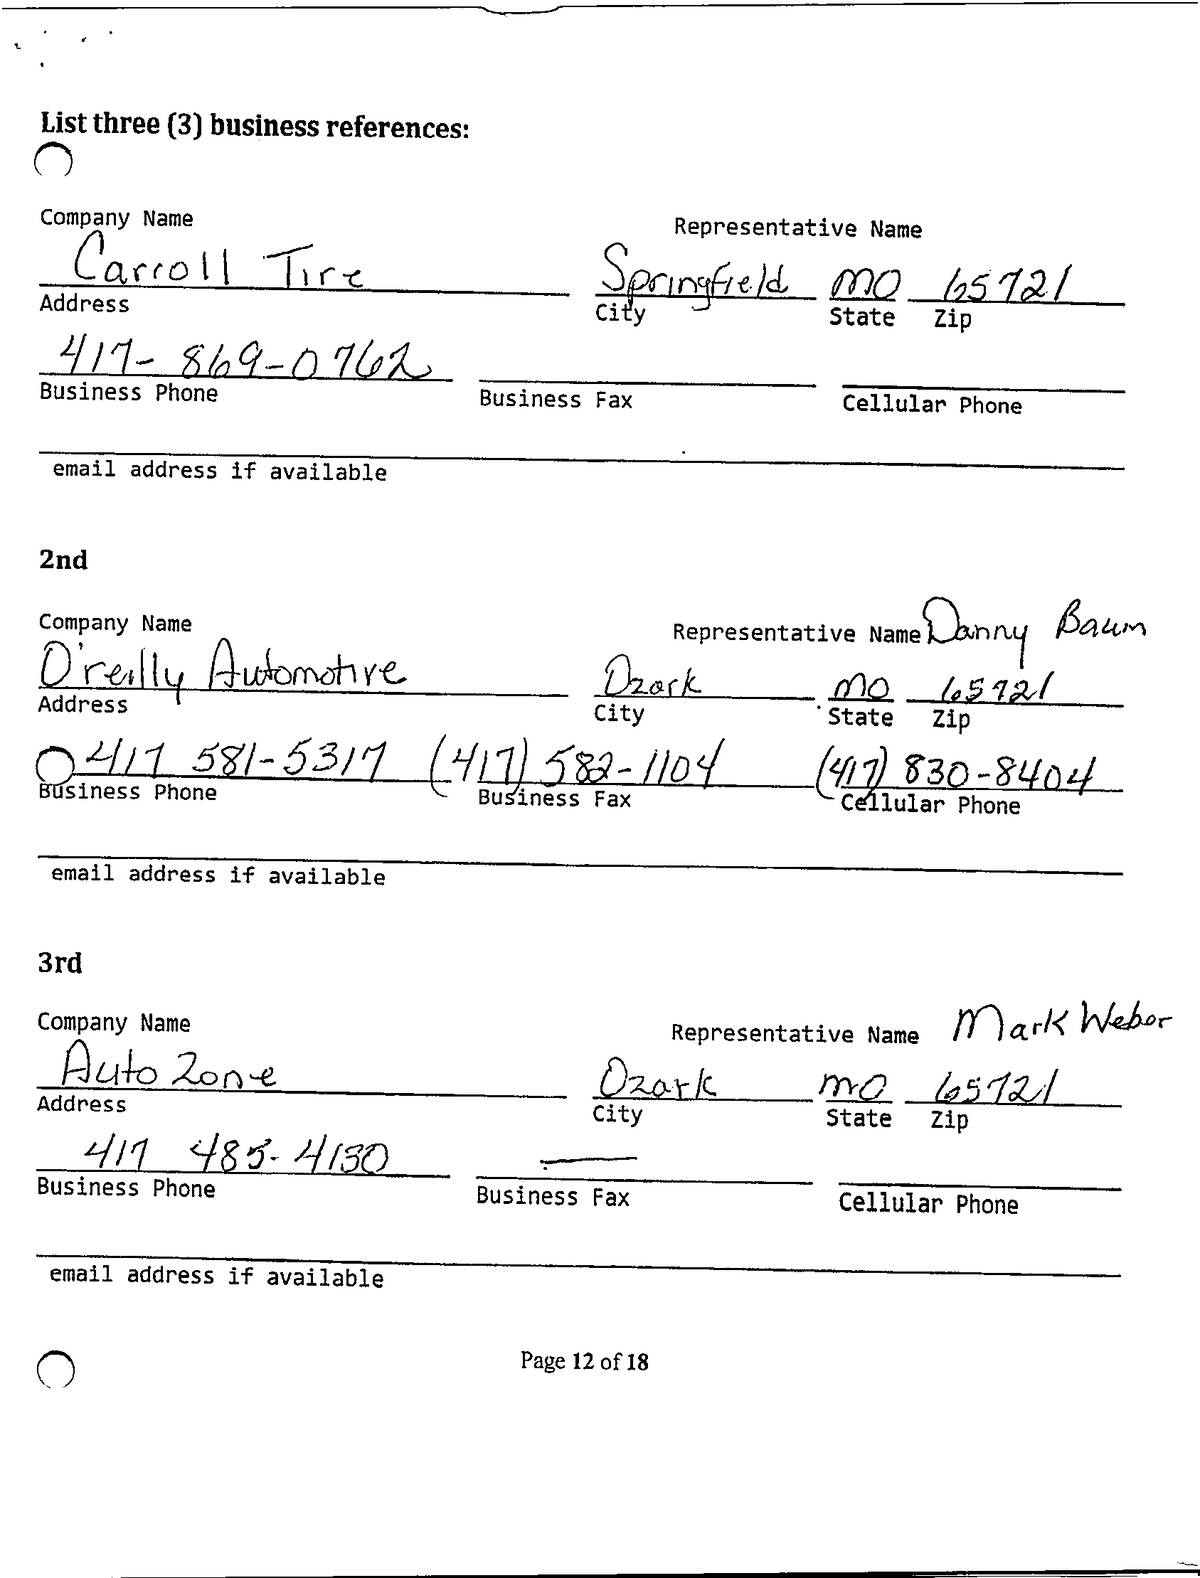 List three (3) business references:
Company Name Representative Name
Carroll Tire Springfield MO 65721
Address City State Zip
417-869-0762
Business Phone Business Fax Cellular Phone
email address if available
2nd
Company Name Representative Name Danny Baum
O'reilly Automotive Ozark MO 65721
Address City State Zip
417 581-5317 (417) 582-1104 (417) 830-8404
Business Phone Business Fax Cellular Phone
email address if available
3rd
Company Name Representative Name Mark Weber
Auto Zone Ozark MO 65721
Address City State Zip
417 485-4130 —
Business Phone Business Fax Cellular Phone
email address if available
Page 12 of 18